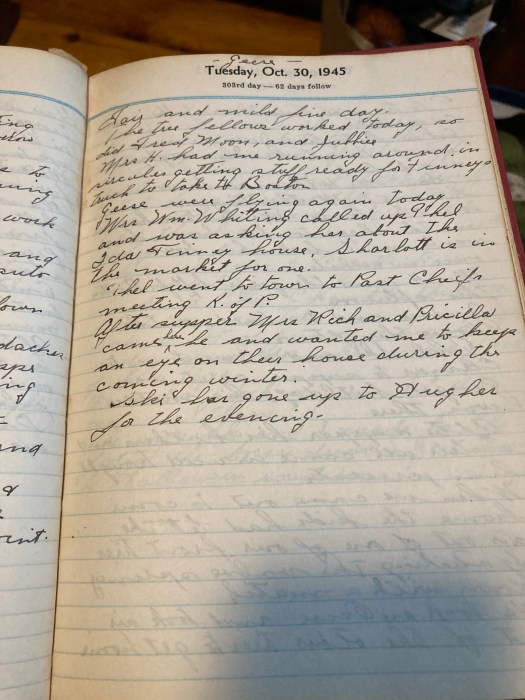 - Geese -
Tuesday, Oct. 30, 1945
303rd day — 62 days follow
Fair and mild fine day.
The tree fellows worked today, so
did Fred Moon, and Jubbie
Mrs H. had me running around in
circules getting stuff ready for Finneys
truck to take to Boston
Geese were flying again today
Mrs Wm. Whiting called up Thel
and was asking her about the
Ida Finney house, Sharlott is in
the market for one.
Thel went to town to Past Cheifs
meeting K. of P.
After supper Mrs Rich and Pricilla
came to be and wanted me to keep
an eye on their house during the
coming winter.
Iski has gone up to Hugher
for the evening-
ing
to
work
and
auto
down
dacher
ing
and
&
oint.